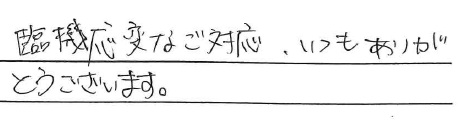 臨機応変なご対応、いつもありが
とうございます。